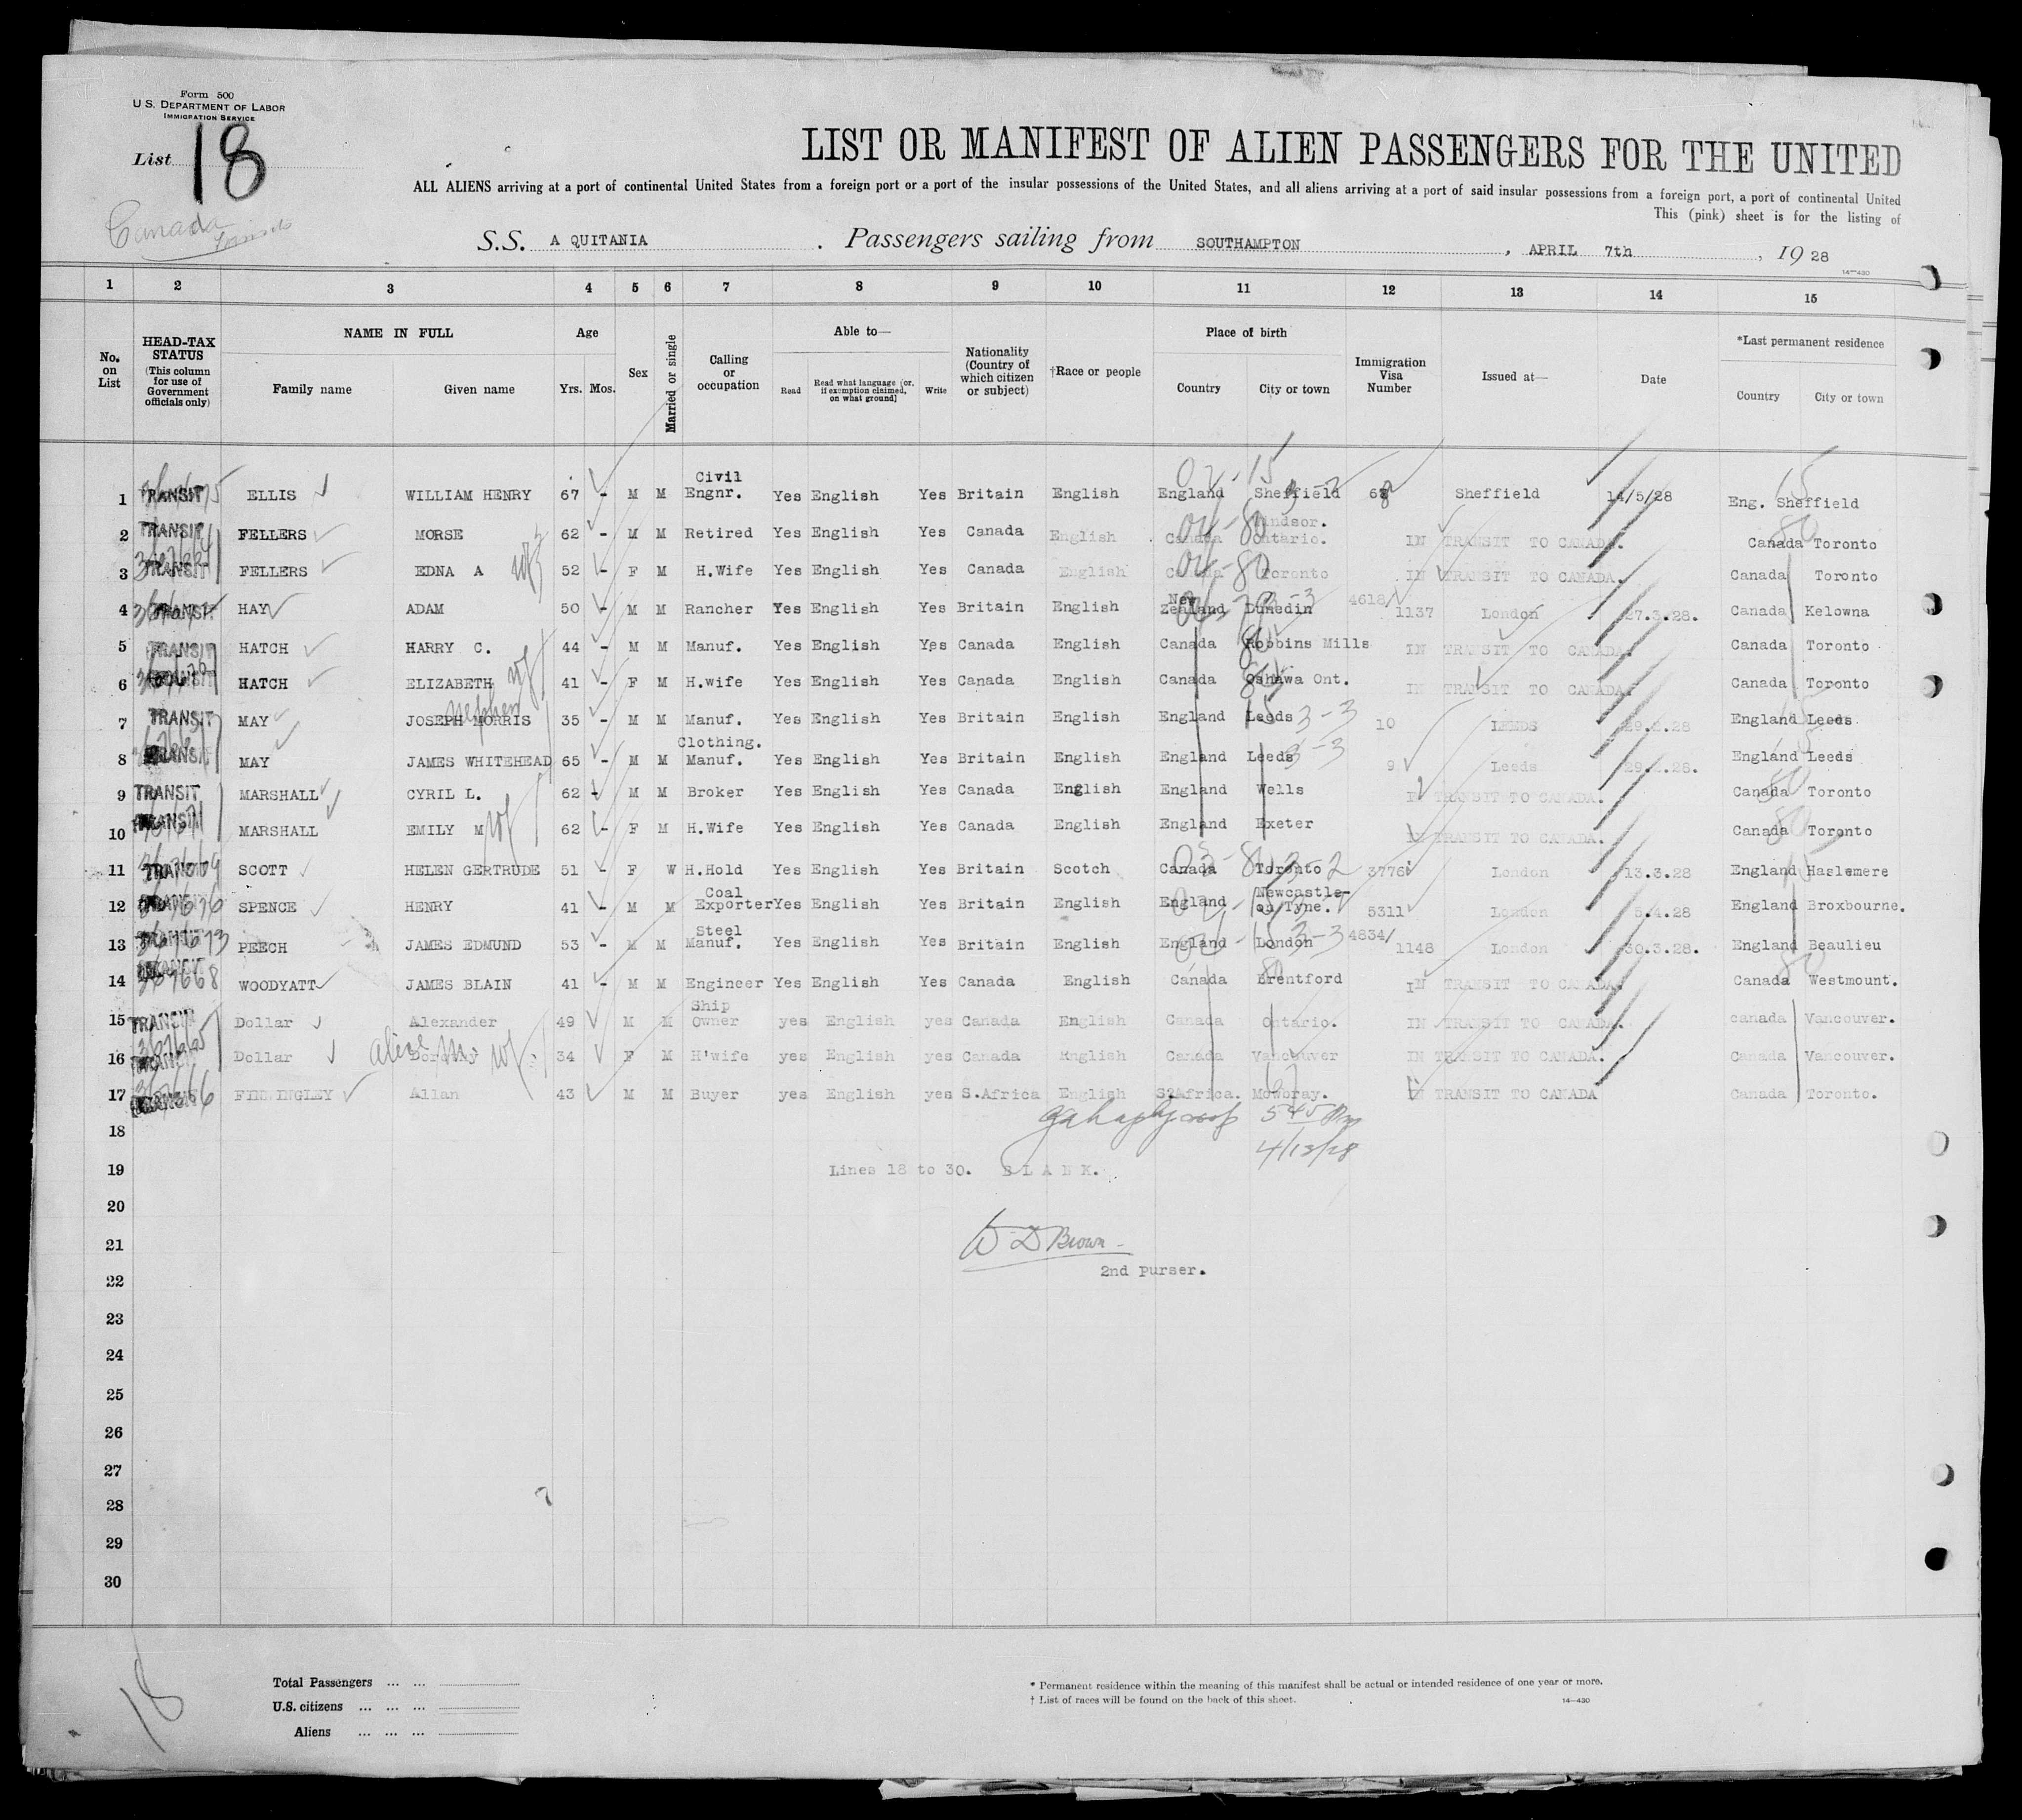 Form 500
U.S. DEPARTMENT OF LABOR
IMMIGRATION SERVICE
List 18
Canada
LIST OR MANIFEST OF ALIEN PASSENGERS FOR THE UNITED
ALL ALIENS arriving at a port of continental United States from a foreign port or a port of the insular possessions of the United States, and all aliens arriving at a port of said insular possessions from a foreign port, a port of continental United
This (pink) sheet is for the listing of
S.S. A QUITANIA . Passengers sailing from SOUTHAMPTON , APRIL 7th , 19 28
14—430
1 2 3 4 5 6 7 8 9 10 11 12 13 14 15
No. on List
HEAD-TAX STATUS (This column for use of Government officials only)
NAME IN FULL
Family name Given name
Age
Yrs. Mos.
Sex
Married or single
Calling or occupation
Able to—
Read Read what language (or, if exemption claimed, on what ground) Write
Nationality (Country of which citizen or subject)
†Race or people
Place of birth
Country City or town
Immigration Visa Number
Issued at—
Date
*Last permanent residence
Country City or town
1 TRANSIT ELLIS WILLIAM HENRY 67 - M M Civil Engnr. Yes English Yes Britain English England Sheffield Sheffield 14/5/28 Eng. Sheffield
2 TRANSIT FELLERS MORSE 62 - M M Retired Yes English Yes Canada English Canada Windsor. Ontario. IN TRANSIT TO CANADA. Canada Toronto
3 TRANSIT FELLERS EDNA A wf 52 - F M H.Wife Yes English Yes Canada English Canada Toronto IN TRANSIT TO CANADA. Canada Toronto
4 TRANSIT HAY ADAM 50 - M M Rancher Yes English Yes Britain English New Zealand Dunedin 4618/ 1137 London 27.3.28. Canada Kelowna
5 TRANSIT HATCH HARRY C. 44 - M M Manuf. Yes English Yes Canada English Canada Robbins Mills IN TRANSIT TO CANADA. Canada Toronto
6 TRANSIT HATCH ELIZABETH wf 41 - F M H.wife Yes English Yes Canada English Canada Oshawa Ont. IN TRANSIT TO CANADA. Canada Toronto
7 TRANSIT MAY JOSEPH MORRIS nephew 35 - M M Manuf. Yes English Yes Britain English England Leeds 3-3 10 LEEDS 29.2.28 England Leeds
8 TRANSIT MAY JAMES WHITEHEAD 65 - M M Clothing. Manuf. Yes English Yes Britain English England Leeds 3-3 9 Leeds England Leeds
9 TRANSIT MARSHALL CYRIL L. 62 - M M Broker Yes English Yes Canada English England Wells IN TRANSIT TO CANADA. Canada Toronto
10 TRANSIT MARSHALL EMILY M wf 62 - F M H.Wife Yes English Yes Canada English England Exeter IN TRANSIT TO CANADA. Canada Toronto
11 TRANSIT SCOTT HELEN GERTRUDE 51 - F W H.Hold Yes English Yes Britain Scotch Canada Toronto 3776 London 13.3.28 England Haslemere
12 TRANSIT SPENCE HENRY 41 - M M Coal Exporter Yes English Yes Britain English England Newcastle-on Tyne. 5311 London 5.4.28 England Broxbourne.
13 TRANSIT PEECH JAMES EDMUND 53 - M M Steel Manuf. Yes English Yes Britain English England London 3-3 4834/ 1148 London 30.3.28. England Beaulieu
14 TRANSIT WOODYATT JAMES BLAIN 41 - M M Engineer Yes English Yes Canada English Canada Brentford IN TRANSIT TO CANADA. Canada Westmount.
15 TRANSIT Dollar Alexander 49 M M Ship Owner yes English yes Canada English Canada Ontario. IN TRANSIT TO CANADA. canada Vancouver.
16 TRANSIT Dollar Alice M. Dorothy wf. 34 F M H'wife yes English yes Canada English Canada Vancouver IN TRANSIT TO CANADA. Canada Vancouver.
17 TRANSIT Allan 43 M M Buyer yes English yes S.Africa English S.Africa. Mowbray. IN TRANSIT TO CANADA Canada Toronto.
18
545 Pm
4/13/28
19 Lines 18 to 30. B L A N K.
20
21 W D Brown
22 2nd Purser.
23
24
25
26
27
28
29
30
18
Total Passengers ... ...
U.S. citizens ... ... ...
Aliens ... ... ...
* Permanent residence within the meaning of this manifest shall be actual or intended residence of one year or more.
† List of races will be found on the back of this sheet.
14—430